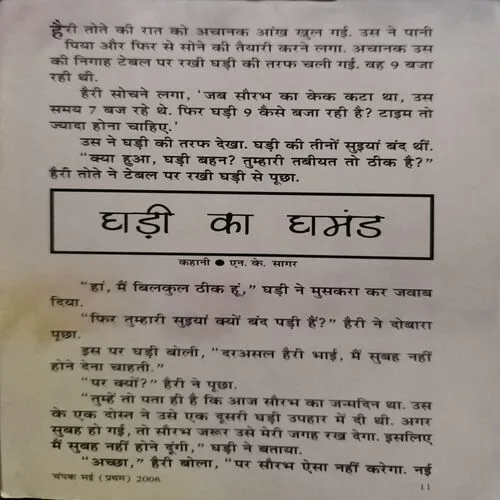 हैरी तोते की रात को अचानक आंख खुल गई. उस ने पानी
पिया और फिर से सोने की तैयारी करने लगा. अचानक उस
की निगाह टेबल पर रखी घड़ी की तरफ चली गई. वह 9 बजा
रही थी.
हैरी सोचने लगा, ‘जब सौरभ का केक कटा था, उस
समय 7 बज रहे थे. फिर घड़ी 9 कैसे बजा रही है? टाइम तो
ज्यादा होना चाहिए.’
उस ने घड़ी की तरफ देखा. घड़ी की तीनों सुइयां बंद थीं.
“क्या हुआ, घड़ी बहन? तुम्हारी तबीयत तो ठीक है?”
हैरी तोते ने टेबल पर रखी घड़ी से पूछा.
घड़ी का घमंड
कहानी ● एन. के. सागर
“हां, मैं बिलकुल ठीक हूं,” घड़ी ने मुसकरा कर जवाब
दिया.
“फिर तुम्हारी सुइयां क्यों बंद पड़ी हैं?” हैरी ने दोबारा
पूछा.
इस पर घड़ी बोली, “दरअसल हैरी भाई, मैं सुबह नहीं
होने देना चाहती.”
“पर क्यों?” हैरी ने पूछा.
“तुम्हें तो पता ही है कि आज सौरभ का जन्मदिन था. उस
के एक दोस्त ने उसे एक दूसरी घड़ी उपहार में दी थी. अगर
सुबह हो गई, तो सौरभ जरूर उसे मेरी जगह रख देगा. इसलिए
मैं सुबह नहीं होने दूंगी,” घड़ी ने बताया.
“अच्छा,” हैरी बोला, “पर सौरभ ऐसा नहीं करेगा. नई
चंपक मई (प्रथम) 2006
11